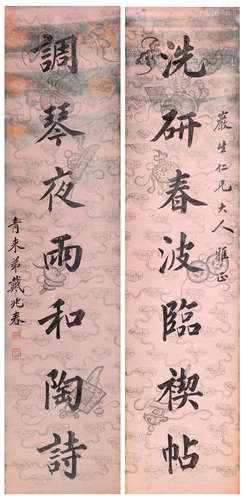 嚴生仁兄大人雅正
洗研春波臨禊帖
調琴夜雨和陶詩
青來弟戴兆春